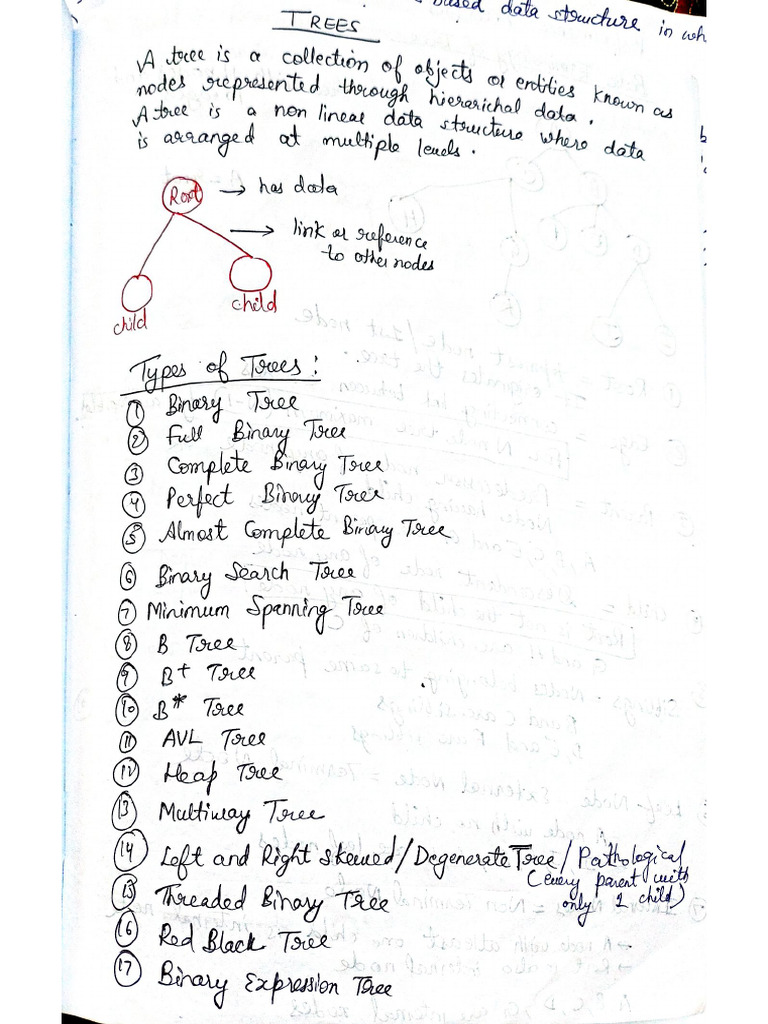 based data structure in wh
TREES
A tree is a collection of objects or entities known as
nodes represented through hierarichal data.
A tree is a non linear data structure where data
is arranged at multiple levels.
Root → has data
→ link or reference
to other nodes
child
child
Types of Trees:
① Binary Tree
② Full Binary Tree
③ Complete Binary Tree
④ Perfect Binary Tree
⑤ Almost Complete Binary Tree
⑥ Binary Search Tree
⑦ Minimum Spanning Tree
⑧ B Tree
⑨ B+ Tree
⑩ B* Tree
⑪ AVL Tree
⑫ Heap Tree
⑬ Multiway Tree
⑭ Left and Right Skewed/Degenerate Tree/Pathological
(every parent with
only 1 child)
⑮ Threaded Binary Tree
⑯ Red Black Tree
⑰ Binary Expression Tree